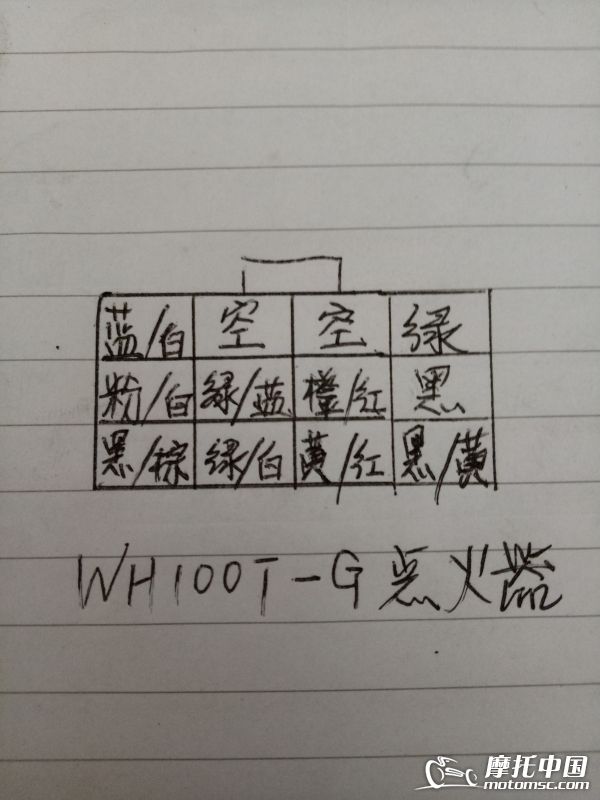 蓝/白 空 空 绿
粉/白 绿/蓝 橙/红 黑
黑/棕 绿/白 黄/红 黑/黄
WH100T-G 点火器
摩托中国
motomsc.com